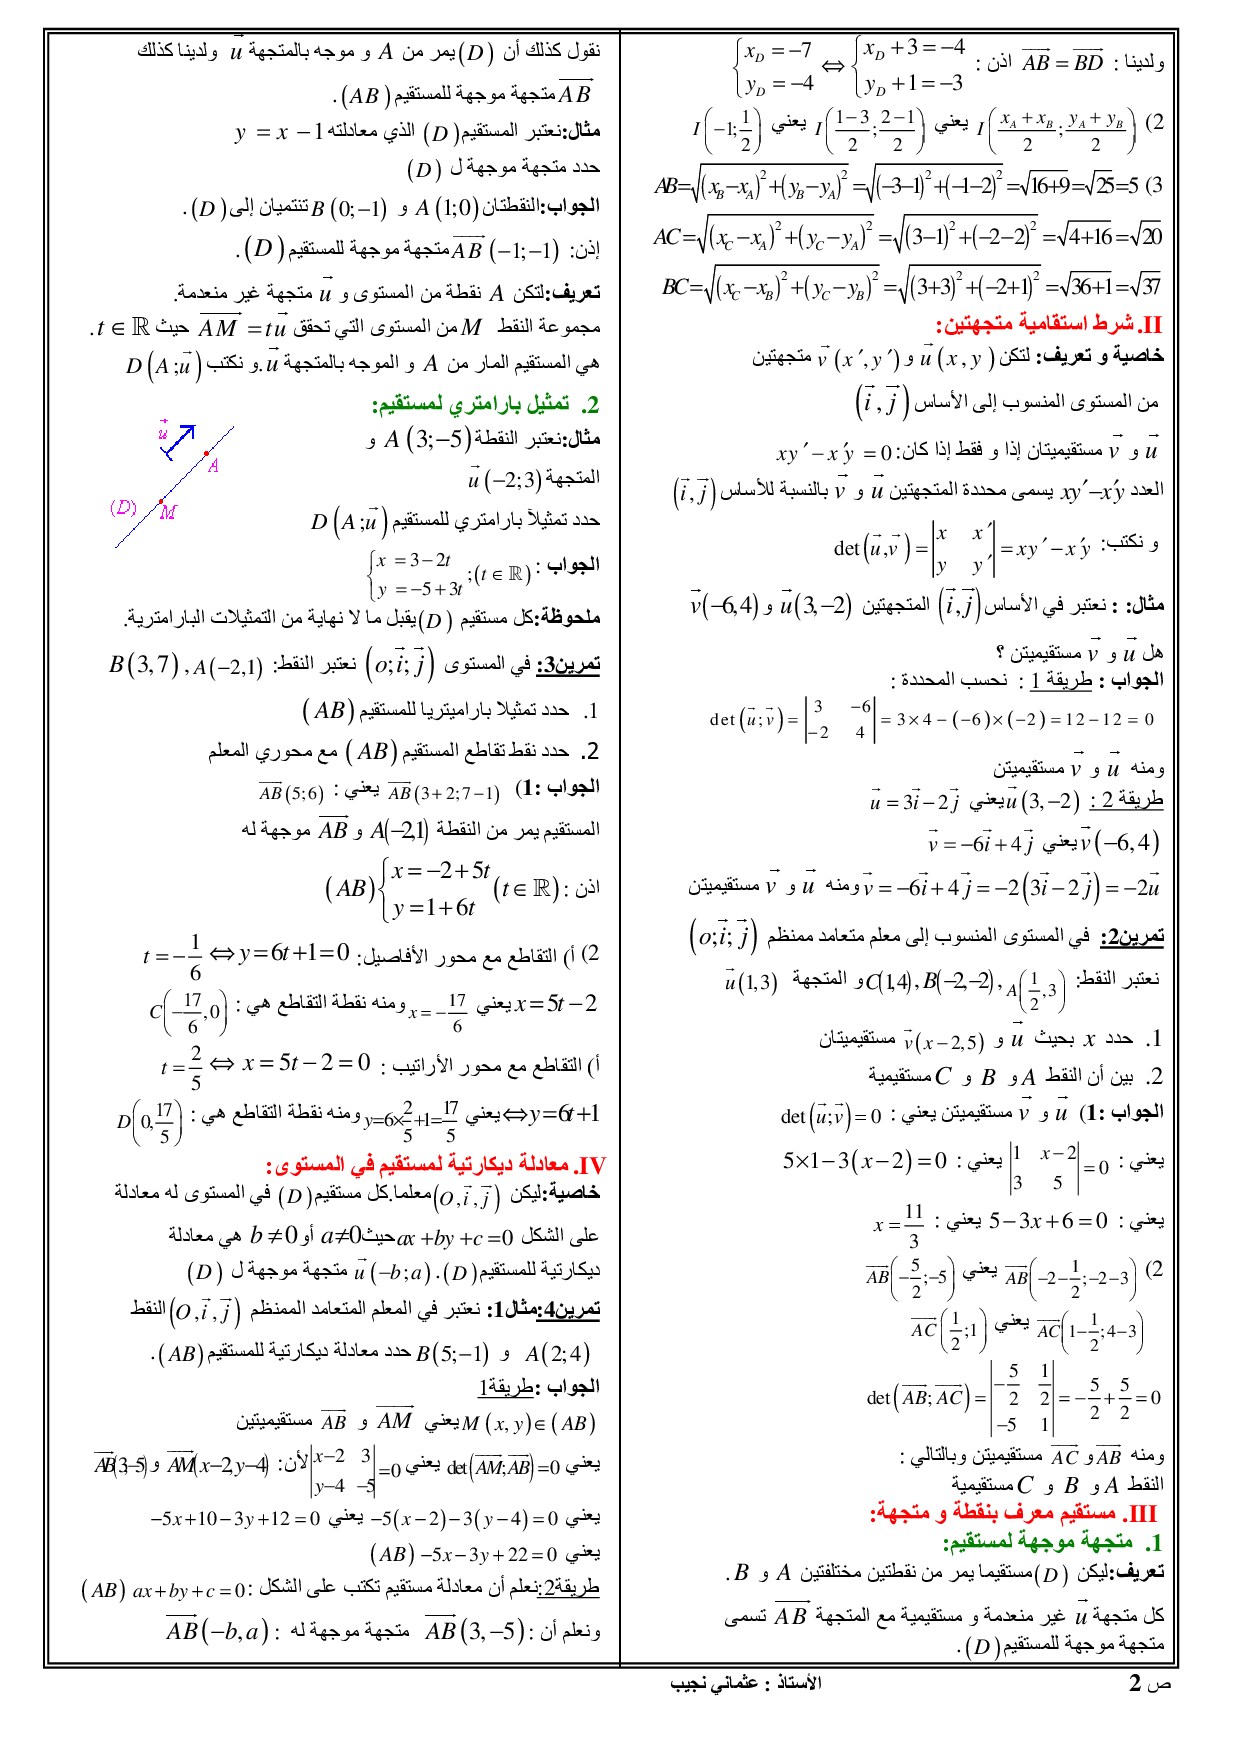 ولدينا : $\overrightarrow{AB} = \overrightarrow{BD}$ اذن : $\begin{cases} x_D + 3 = -4 \\ y_D + 1 = -3 \end{cases} \Leftrightarrow \begin{cases} x_D = -7 \\ y_D = -4 \end{cases}$
2) $I\left(\frac{x_A + x_B}{2}; \frac{y_A + y_B}{2}\right)$ يعني $I\left(\frac{1-3}{2}; \frac{2-1}{2}\right)$ يعني $I\left(-1; \frac{1}{2}\right)$
3) $AB = \sqrt{(x_B - x_A)^2 + (y_B - y_A)^2} = \sqrt{(-3-1)^2 + (-1-2)^2} = \sqrt{16+9} = \sqrt{25} = 5$
$AC = \sqrt{(x_C - x_A)^2 + (y_C - y_A)^2} = \sqrt{(3-1)^2 + (-2-2)^2} = \sqrt{4+16} = \sqrt{20}$
$BC = \sqrt{(x_C - x_B)^2 + (y_C - y_B)^2} = \sqrt{(3+3)^2 + (-2+1)^2} = \sqrt{36+1} = \sqrt{37}$
II. شرط استقامية متجهتين:
خاصية و تعريف: لتكن $\vec{u}(x, y)$ و $\vec{v}(x', y')$ متجهتين
من المستوى المنسوب إلى الأساس $(\vec{i}, \vec{j})$
$\vec{u}$ و $\vec{v}$ مستقيميتان إذا و فقط إذا كان: $xy' - x'y = 0$
العدد $xy' - x'y$ يسمى محددة المتجهتين $\vec{u}$ و $\vec{v}$ بالنسبة للأساس $(\vec{i}, \vec{j})$
و نكتب: $\det(\vec{u}, \vec{v}) = \begin{vmatrix} x & x' \\ y & y' \end{vmatrix} = xy' - x'y$
مثال: : نعتبر في الأساس $(\vec{i}, \vec{j})$ المتجهتين $\vec{u}(3, -2)$ و $\vec{v}(-6, 4)$
هل $\vec{u}$ و $\vec{v}$ مستقيميتن ؟
الجواب : طريقة 1 : نحسب المحددة :
$\det(\vec{u}; \vec{v}) = \begin{vmatrix} 3 & -6 \\ -2 & 4 \end{vmatrix} = 3 \times 4 - (-6) \times (-2) = 12 - 12 = 0$
ومنه $\vec{u}$ و $\vec{v}$ مستقيميتن
طريقة 2 : $\vec{u}(3, -2)$ يعني $\vec{u} = 3\vec{i} - 2\vec{j}$
$\vec{v}(-6, 4)$ يعني $\vec{v} = -6\vec{i} + 4\vec{j}$
$\vec{v} = -6\vec{i} + 4\vec{j} = -2(3\vec{i} - 2\vec{j}) = -2\vec{u}$ ومنه $\vec{u}$ و $\vec{v}$ مستقيميتن
تمرين2: في المستوى المنسوب إلى معلم متعامد ممنظم $(o; \vec{i}; \vec{j})$
نعتبر النقط: $A\left(\frac{1}{2}, 3\right)$ , $B(-2, -2)$ , $C(1, 4)$ و المتجهة $\vec{u}(1, 3)$
1. حدد $x$ بحيث $\vec{u}$ و $\vec{v}(x-2, 5)$ مستقيميتان
2. بين أن النقط $A$ و $B$ و $C$ مستقيمية
الجواب :1) $\vec{u}$ و $\vec{v}$ مستقيميتن يعني : $\det(\vec{u}; \vec{v}) = 0$
يعني : $\begin{vmatrix} 1 & x-2 \\ 3 & 5 \end{vmatrix} = 0$ يعني : $5 \times 1 - 3(x-2) = 0$
يعني : $5 - 3x + 6 = 0$ يعني : $x = \frac{11}{3}$
2) $\overrightarrow{AB}\left(-2 - \frac{1}{2}; -2 - 3\right)$ يعني $\overrightarrow{AB}\left(-\frac{5}{2}; -5\right)$
$\overrightarrow{AC}\left(1 - \frac{1}{2}; 4 - 3\right)$ يعني $\overrightarrow{AC}\left(\frac{1}{2}; 1\right)$
$\det(\overrightarrow{AB}; \overrightarrow{AC}) = \begin{vmatrix} -\frac{5}{2} & \frac{1}{2} \\ -5 & 1 \end{vmatrix} = -\frac{5}{2} + \frac{5}{2} = 0$
ومنه $\overrightarrow{AB}$ و $\overrightarrow{AC}$ مستقيميتن وبالتالي :
النقط $A$ و $B$ و $C$ مستقيمية
III. مستقيم معرف بنقطة و متجهة:
1. متجهة موجهة لمستقيم:
تعريف: ليكن $(D)$ مستقيما يمر من نقطتين مختلفتين $A$ و $B$ .
كل متجهة $\vec{u}$ غير منعدمة و مستقيمية مع المتجهة $\overrightarrow{AB}$ تسمى
متجهة موجهة للمستقيم $(D)$ .
نقول كذلك أن $(D)$ يمر من $A$ و موجه بالمتجهة $\vec{u}$ ولدينا كذلك
$\overrightarrow{AB}$ متجهة موجهة للمستقيم $(AB)$ .
مثال: نعتبر المستقيم $(D)$ الذي معادلته $y = x - 1$
حدد متجهة موجهة ل $(D)$
الجواب: النقطتان $A(1; 0)$ و $B(0; -1)$ تنتميان إلى $(D)$ .
إذن: $\overrightarrow{AB}(-1; -1)$ متجهة موجهة للمستقيم $(D)$ .
تعريف: لتكن $A$ نقطة من المستوى و $\vec{u}$ متجهة غير منعدمة.
مجموعة النقط $M$ من المستوى التي تحقق $\overrightarrow{AM} = t\vec{u}$ حيث $t \in \mathbb{R}$ .
هي المستقيم المار من $A$ و الموجه بالمتجهة $\vec{u}$ .و نكتب $D(A; \vec{u})$
2. تمثيل بارامتري لمستقيم:
مثال: نعتبر النقطة $A(3; -5)$ و
المتجهة $\vec{u}(-2; 3)$
حدد تمثيلا بارامتري للمستقيم $D(A; \vec{u})$
$\vec{u}$
A
(D)
M
الجواب : $\begin{cases} x = 3 - 2t \\ y = -5 + 3t \end{cases} ; (t \in \mathbb{R})$
ملحوظة: كل مستقيم $(D)$ يقبل ما لا نهاية من التمثيلات البارامترية.
تمرين3: في المستوى $(o; \vec{i}; \vec{j})$ نعتبر النقط: $A(-2, 1)$ , $B(3, 7)$
1. حدد تمثيلا باراميتريا للمستقيم $(AB)$
2. حدد نقط تقاطع المستقيم $(AB)$ مع محوري المعلم
الجواب :1) $\overrightarrow{AB}(3+2; 7-1)$ يعني : $\overrightarrow{AB}(5; 6)$
المستقيم يمر من النقطة $A(-2, 1)$ و $\overrightarrow{AB}$ موجهة له
اذن : $(AB) \begin{cases} x = -2 + 5t \\ y = 1 + 6t \end{cases} (t \in \mathbb{R})$
2) أ) التقاطع مع محور الأفاصيل: $y = 6t + 1 = 0 \Leftrightarrow t = -\frac{1}{6}$
$x = 5t - 2$ يعني $x = -\frac{17}{6}$ ومنه نقطة التقاطع هي : $C\left(-\frac{17}{6}, 0\right)$
أ) التقاطع مع محور الأراتيب : $x = 5t - 2 = 0 \Leftrightarrow t = \frac{2}{5}$
$\Leftrightarrow y = 6t + 1$ يعني $y = 6 \times \frac{2}{5} + 1 = \frac{17}{5}$ ومنه نقطة التقاطع هي : $D\left(0, \frac{17}{5}\right)$
IV. معادلة ديكارتية لمستقيم في المستوى:
خاصية: ليكن $(O, \vec{i}, \vec{j})$ معلما.كل مستقيم $(D)$ في المستوى له معادلة
على الشكل $ax + by + c = 0$ حيث $a \neq 0$ أو $b \neq 0$ هي معادلة
ديكارتية للمستقيم $(D)$ . $\vec{u}(-b; a)$ متجهة موجهة ل $(D)$
تمرين4: مثال1: نعتبر في المعلم المتعامد الممنظم $(O, \vec{i}, \vec{j})$ النقط
$A(2; 4)$ و $B(5; -1)$ حدد معادلة ديكارتية للمستقيم $(AB)$ .
الجواب : طريقة1
$M(x, y) \in (AB)$ يعني $\overrightarrow{AM}$ و $\overrightarrow{AB}$ مستقيميتين
يعني $\det(\overrightarrow{AM}; \overrightarrow{AB}) = 0$ يعني $\begin{vmatrix} x-2 & 3 \\ y-4 & -5 \end{vmatrix} = 0$ لأن: $\overrightarrow{AM}(x-2, y-4)$ و $\overrightarrow{AB}(3, -5)$
يعني $-5(x-2) - 3(y-4) = 0$ يعني $-5x + 10 - 3y + 12 = 0$
يعني $(AB)\ -5x - 3y + 22 = 0$
طريقة2: نعلم أن معادلة مستقيم تكتب على الشكل : $(AB)\ ax + by + c = 0$
ونعلم أن : $\overrightarrow{AB}(3, -5)$ متجهة موجهة له : $\overrightarrow{AB}(-b, a)$
ص 2 الأستاذ : عثماني نجيب